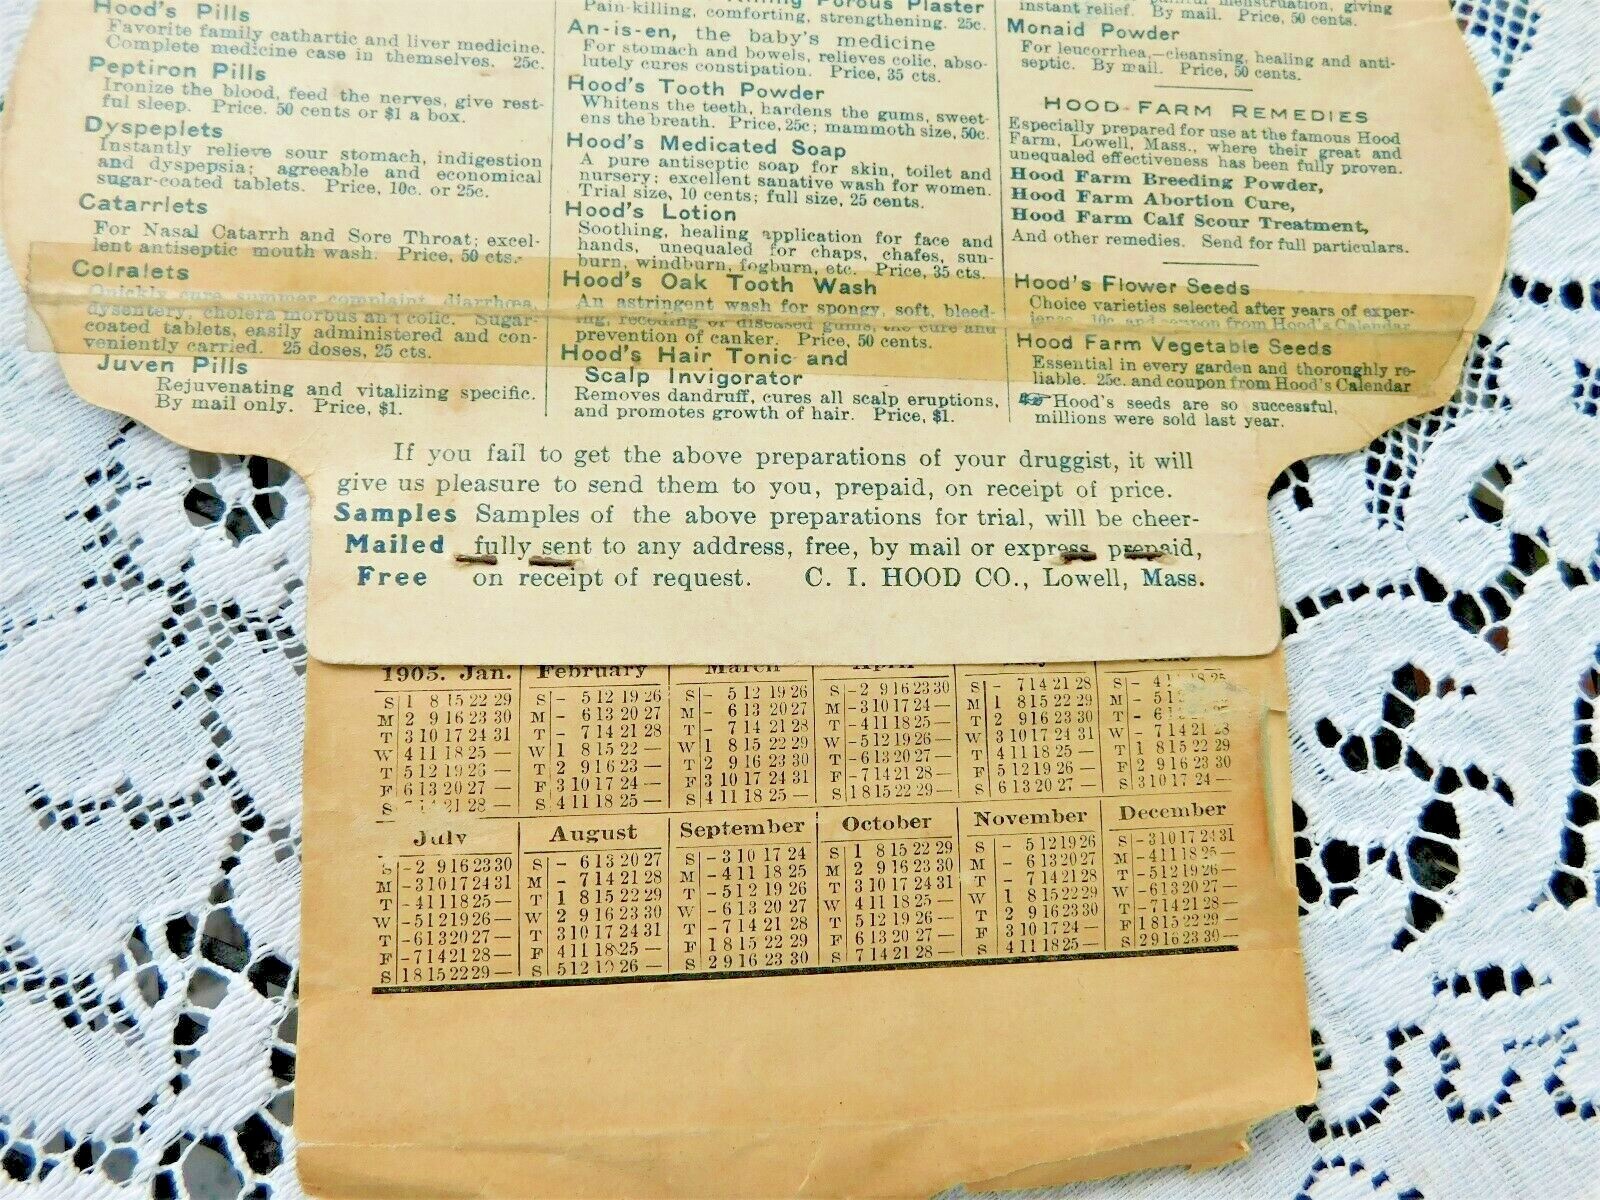 Hood's Pills
Favorite family cathartic and liver medicine.
Complete medicine case in themselves. 25c.
Peptiron Pills
Ironize the blood, feed the nerves, give rest-
ful sleep. Price. 50 cents or $1 a box.
Dyspeplets
Instantly relieve sour stomach, indigestion
and dyspepsia; agreeable and economical
sugar-coated tablets. Price, 10c. or 25c.
Catarrlets
For Nasal Catarrh and Sore Throat; excel-
lent antiseptic mouth wash. Price, 50 cts.
Colralets
Quickly cure summer complaint, diarrhœa,
dysentery, cholera morbus and colic. Sugar-
coated tablets, easily administered and con-
veniently carried. 25 doses, 25 cts.
Juven Pills
Rejuvenating and vitalizing specific.
By mail only. Price, $1.
Porous Plaster
Pain-killing, comforting, strengthening. 25c.
An-is-en, the baby's medicine
For stomach and bowels, relieves colic, abso-
lutely cures constipation. Price, 35 cts.
Hood's Tooth Powder
Whitens the teeth, hardens the gums, sweet-
ens the breath. Price, 25c; mammoth size, 50c.
Hood's Medicated Soap
A pure antiseptic soap for skin, toilet and
nursery; excellent sanative wash for women.
Trial size, 10 cents; full size, 25 cents.
Hood's Lotion
Soothing, healing application for face and
hands, unequaled for chaps, chafes, sun-
burn, windburn, fogburn, etc. Price, 35 cts.
Hood's Oak Tooth Wash
An astringent wash for spongy, soft, bleed-
ing, receding or diseased gums, the cure and
prevention of canker. Price, 50 cents.
Hood's Hair Tonic and
Scalp Invigorator
Removes dandruff, cures all scalp eruptions,
and promotes growth of hair. Price, $1.
menstruation, giving
instant relief. By mail. Price, 50 cents.
Monaid Powder
For leucorrhea,—cleansing, healing and anti-
septic. By mail. Price, 50 cents.
HOOD FARM REMEDIES
Especially prepared for use at the famous Hood
Farm, Lowell, Mass., where their great and
unequaled effectiveness has been fully proven.
Hood Farm Breeding Powder,
Hood Farm Abortion Cure,
Hood Farm Calf Scour Treatment,
And other remedies. Send for full particulars.
Hood's Flower Seeds
Choice varieties selected after years of exper-
ience. 10c. and coupon from Hood's Calendar
Hood Farm Vegetable Seeds
Essential in every garden and thoroughly re-
liable. 25c. and coupon from Hood's Calendar
☞ Hood's seeds are so successful,
millions were sold last year.
If you fail to get the above preparations of your druggist, it will
give us pleasure to send them to you, prepaid, on receipt of price.
Samples Samples of the above preparations for trial, will be cheer-
Mailed fully sent to any address, free, by mail or express prepaid,
Free on receipt of request. C. I. HOOD CO., Lowell, Mass.
1905. Jan. February March April May June
S 1 8 15 22 29 S - 5 12 19 26 S - 5 12 19 26 S - 2 9 16 23 30 S - 7 14 21 28 S - 4 18 25
M 2 9 16 23 30 M - 6 13 20 27 M - 6 13 20 27 M - 3 10 17 24 — M 1 8 15 22 29 M - 5
T 3 10 17 24 31 T - 7 14 21 28 T - 7 14 21 28 T - 4 11 18 25 — T 2 9 16 23 30 T - 6
W 4 11 18 25 — W 1 8 15 22 — W 1 8 15 22 29 W - 5 12 19 26 — W 3 10 17 24 31 W - 7 14 21 28
T 5 12 19 26 — T 2 9 16 23 — T 2 9 16 23 30 T - 6 13 20 27 — T 4 11 18 25 — T 1 8 15 22 29
F 6 13 20 27 — F 3 10 17 24 — F 3 10 17 24 31 F - 7 14 21 28 — F 5 12 19 26 — F 2 9 16 23 30
S 21 28 — S 4 11 18 25 — S 4 11 18 25 — S 1 8 15 22 29 — S 6 13 20 27 — S 3 10 17 24 —
July August September October November December
S - 2 9 16 23 30 S - 6 13 20 27 S - 3 10 17 24 S 1 8 15 22 29 S - 5 12 19 26 S - 3 10 17 24 31
M - 3 10 17 24 31 M - 7 14 21 28 M - 4 11 18 25 M 2 9 16 23 30 M - 6 13 20 27 M - 4 11 18 25 —
T - 4 11 18 25 — T 1 8 15 22 29 T - 5 12 19 26 T 3 10 17 24 31 T - 7 14 21 28 T - 5 12 19 26 —
W - 5 12 19 26 — W 2 9 16 23 30 W - 6 13 20 27 W 4 11 18 25 — W 1 8 15 22 29 W - 6 13 20 27 —
T - 6 13 20 27 — T 3 10 17 24 31 T - 7 14 21 28 T 5 12 19 26 — T 2 9 16 23 30 T - 7 14 21 28 —
F - 7 14 21 28 — F 4 11 18 25 — F 1 8 15 22 29 F 6 13 20 27 — F 3 10 17 24 — F 1 8 15 22 29 —
S 1 8 15 22 29 — S 5 12 19 26 — S 2 9 16 23 30 S 7 14 21 28 — S 4 11 18 25 — S 2 9 16 23 30 —